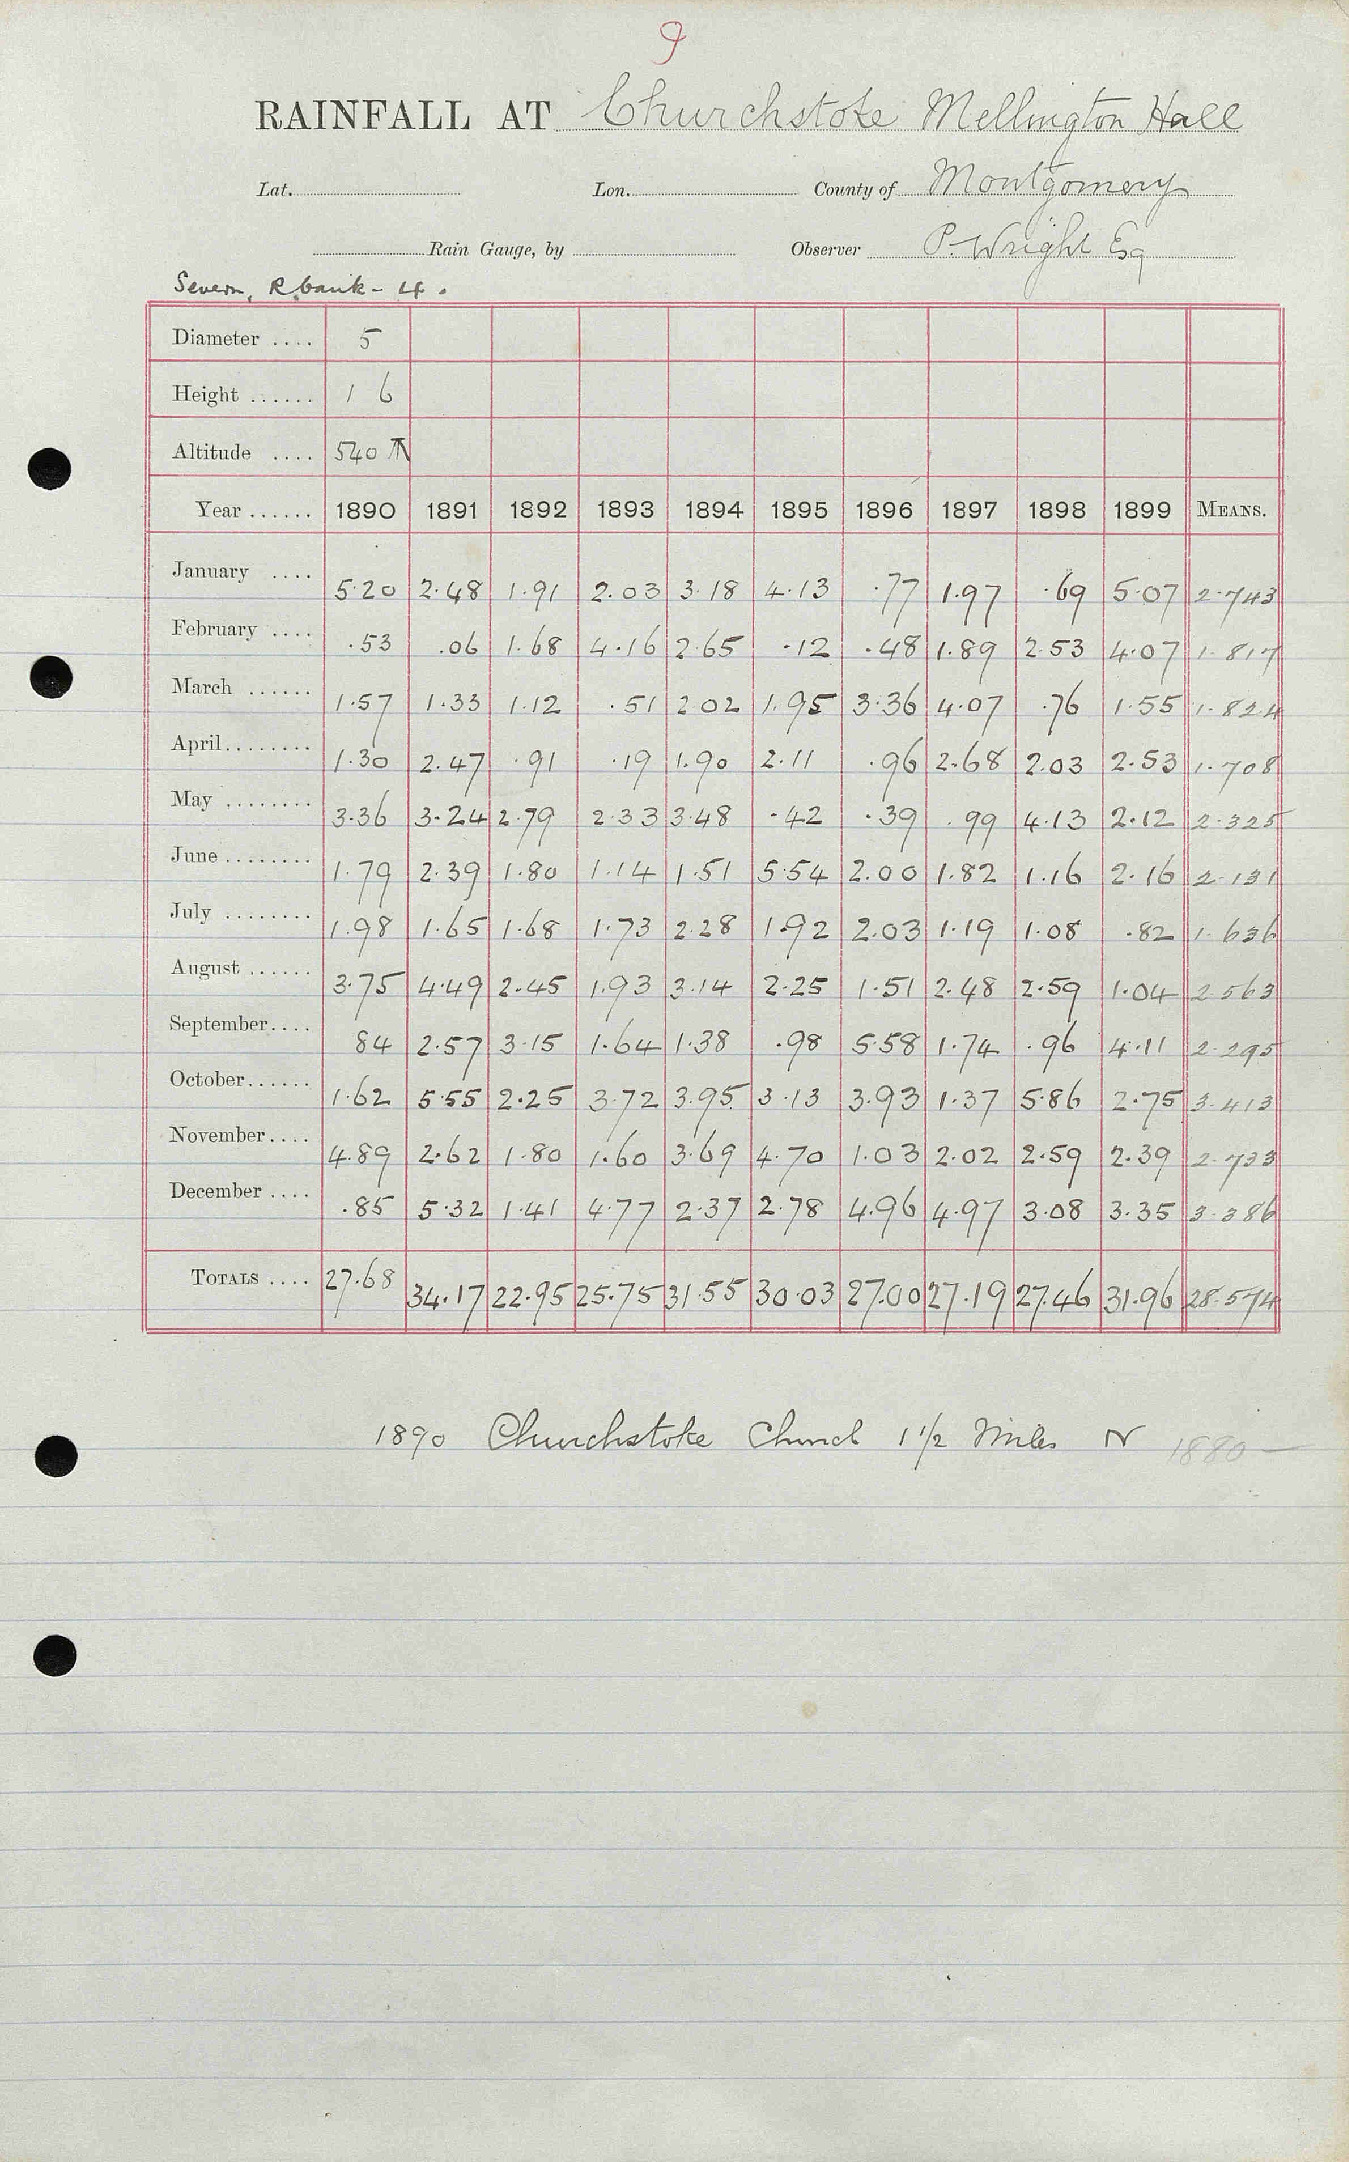 9
RAINFALL AT Churchstoke Mellington Hall
Lat. Lon. County of Montgomery
Rain Gauge, by Observer P. Wright Esq
Severn, R bank - 4.
Diameter .... 5
Height ...... 1 6
Altitude .... 540
Year ...... 1890 1891 1892 1893 1894 1895 1896 1897 1898 1899 MEANS.
January .... 5.20 2.48 1.91 2.03 3.18 4.13 .77 1.97 .69 5.07 2.743
February .... .53 .06 1.68 4.16 2.65 .12 .48 1.89 2.53 4.07 1.817
March ...... 1.57 1.33 1.12 .51 2 02 1.95 3.36 4.07 .76 1.55 1.824
April........ 1.30 2.47 .91 .19 1.90 2.11 .96 2.68 2.03 2.53 1.708
May ........ 3.36 3.24 2.79 2.33 3.48 .42 .39 .99 4.13 2.12 2.325
June ........ 1.79 2.39 1.80 1.14 1.51 5.54 2.00 1.82 1.16 2.16 2.131
July ........ 1.98 1.65 1.68 1.73 2.28 1.92 2.03 1.19 1.08 .82 1.636
August ...... 3.75 4.49 2.45 1.93 3.14 2.25 1.51 2.48 2.59 1.04 2.563
September.... 84 2.57 3.15 1.64 1.38 .98 5.58 1.74 .96 4.11 2.295
October...... 1.62 5.55 2.25 3.72 3.95 3.13 3.93 1.37 5.86 2.75 3.413
November.... 4.89 2.62 1.80 1.60 3.69 4.70 1.03 2.02 2.59 2.39 2.733
December .... .85 5.32 1.41 4.77 2.37 2.78 4.96 4.97 3.08 3.35 3.386
TOTALS .... 27.68 34.17 22.95 25.75 31.55 30.03 27.00 27.19 27.46 31.96 28.574
1890 Churchstoke Church 1 1/2 Miles N 1880 —